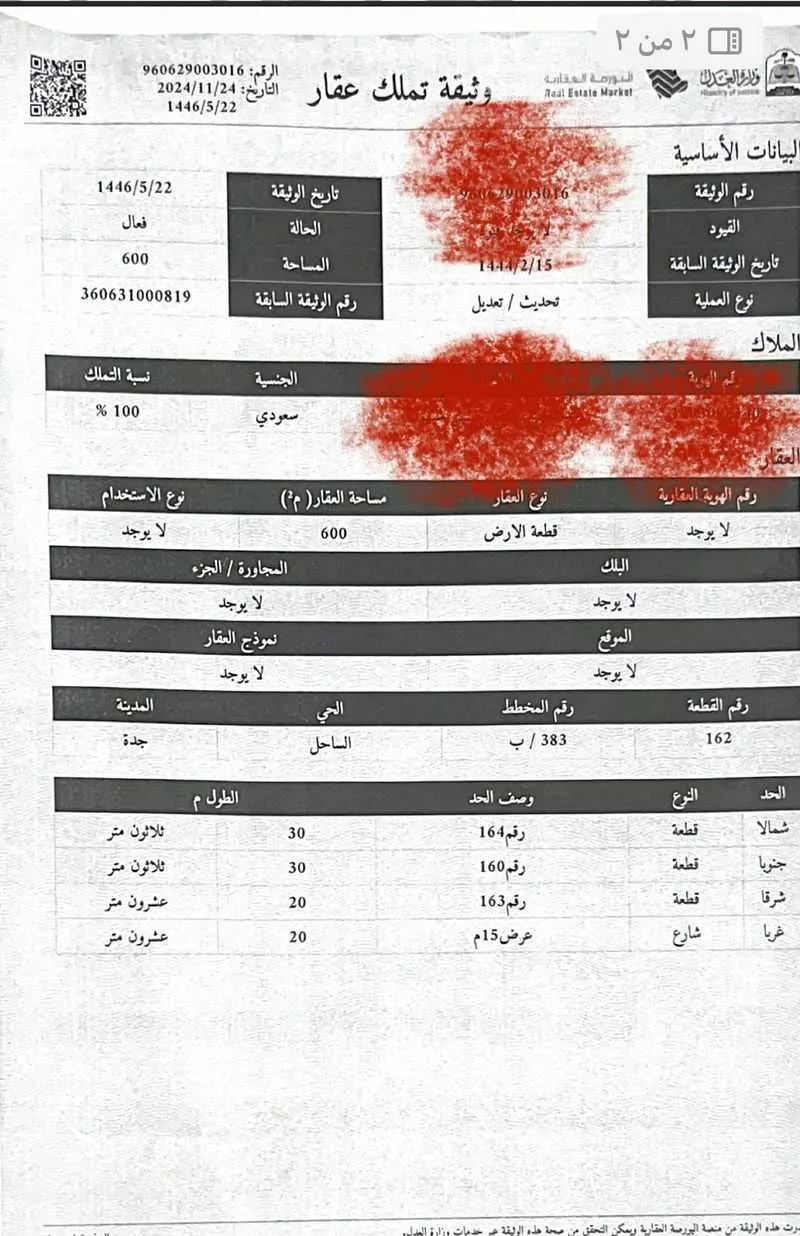 ٢ من ٢
وزارة العدل
Ministry of Justice
البورصة العقارية
Real Estate Market
وثيقة تملك عقار
الرقم: 960629003016
التاريخ: 2024/11/24
1446/5/22
البيانات الأساسية
رقم الوثيقة 960629003016 تاريخ الوثيقة 1446/5/22
القيود الحالة فعال
تاريخ الوثيقة السابقة 1444/2/15 المساحة 600
نوع العملية تحديث / تعديل رقم الوثيقة السابقة 360631000819
الملاك
رقم الهوية الجنسية نسبة التملك
سعودي 100 %
العقار
رقم الهوية العقارية نوع العقار مساحة العقار( م²) نوع الاستخدام
لا يوجد قطعة الارض 600 لا يوجد
البلك المجاورة / الجزء
لا يوجد لا يوجد
الموقع نموذج العقار
لا يوجد لا يوجد
رقم القطعة رقم المخطط الحي المدينة
162 383 / ب الساحل جدة
الحد النوع وصف الحد الطول م
شمالا قطعة رقم164 30 ثلاثون متر
جنوبا قطعة رقم160 30 ثلاثون متر
شرقا قطعة رقم163 20 عشرون متر
غربا شارع عرض15م 20 عشرون متر
هذه الوثيقة من منصة البورصة العقارية ويمكن التحقق من صحة هذه الوثيقة عبر خدمات وزارة العدل.